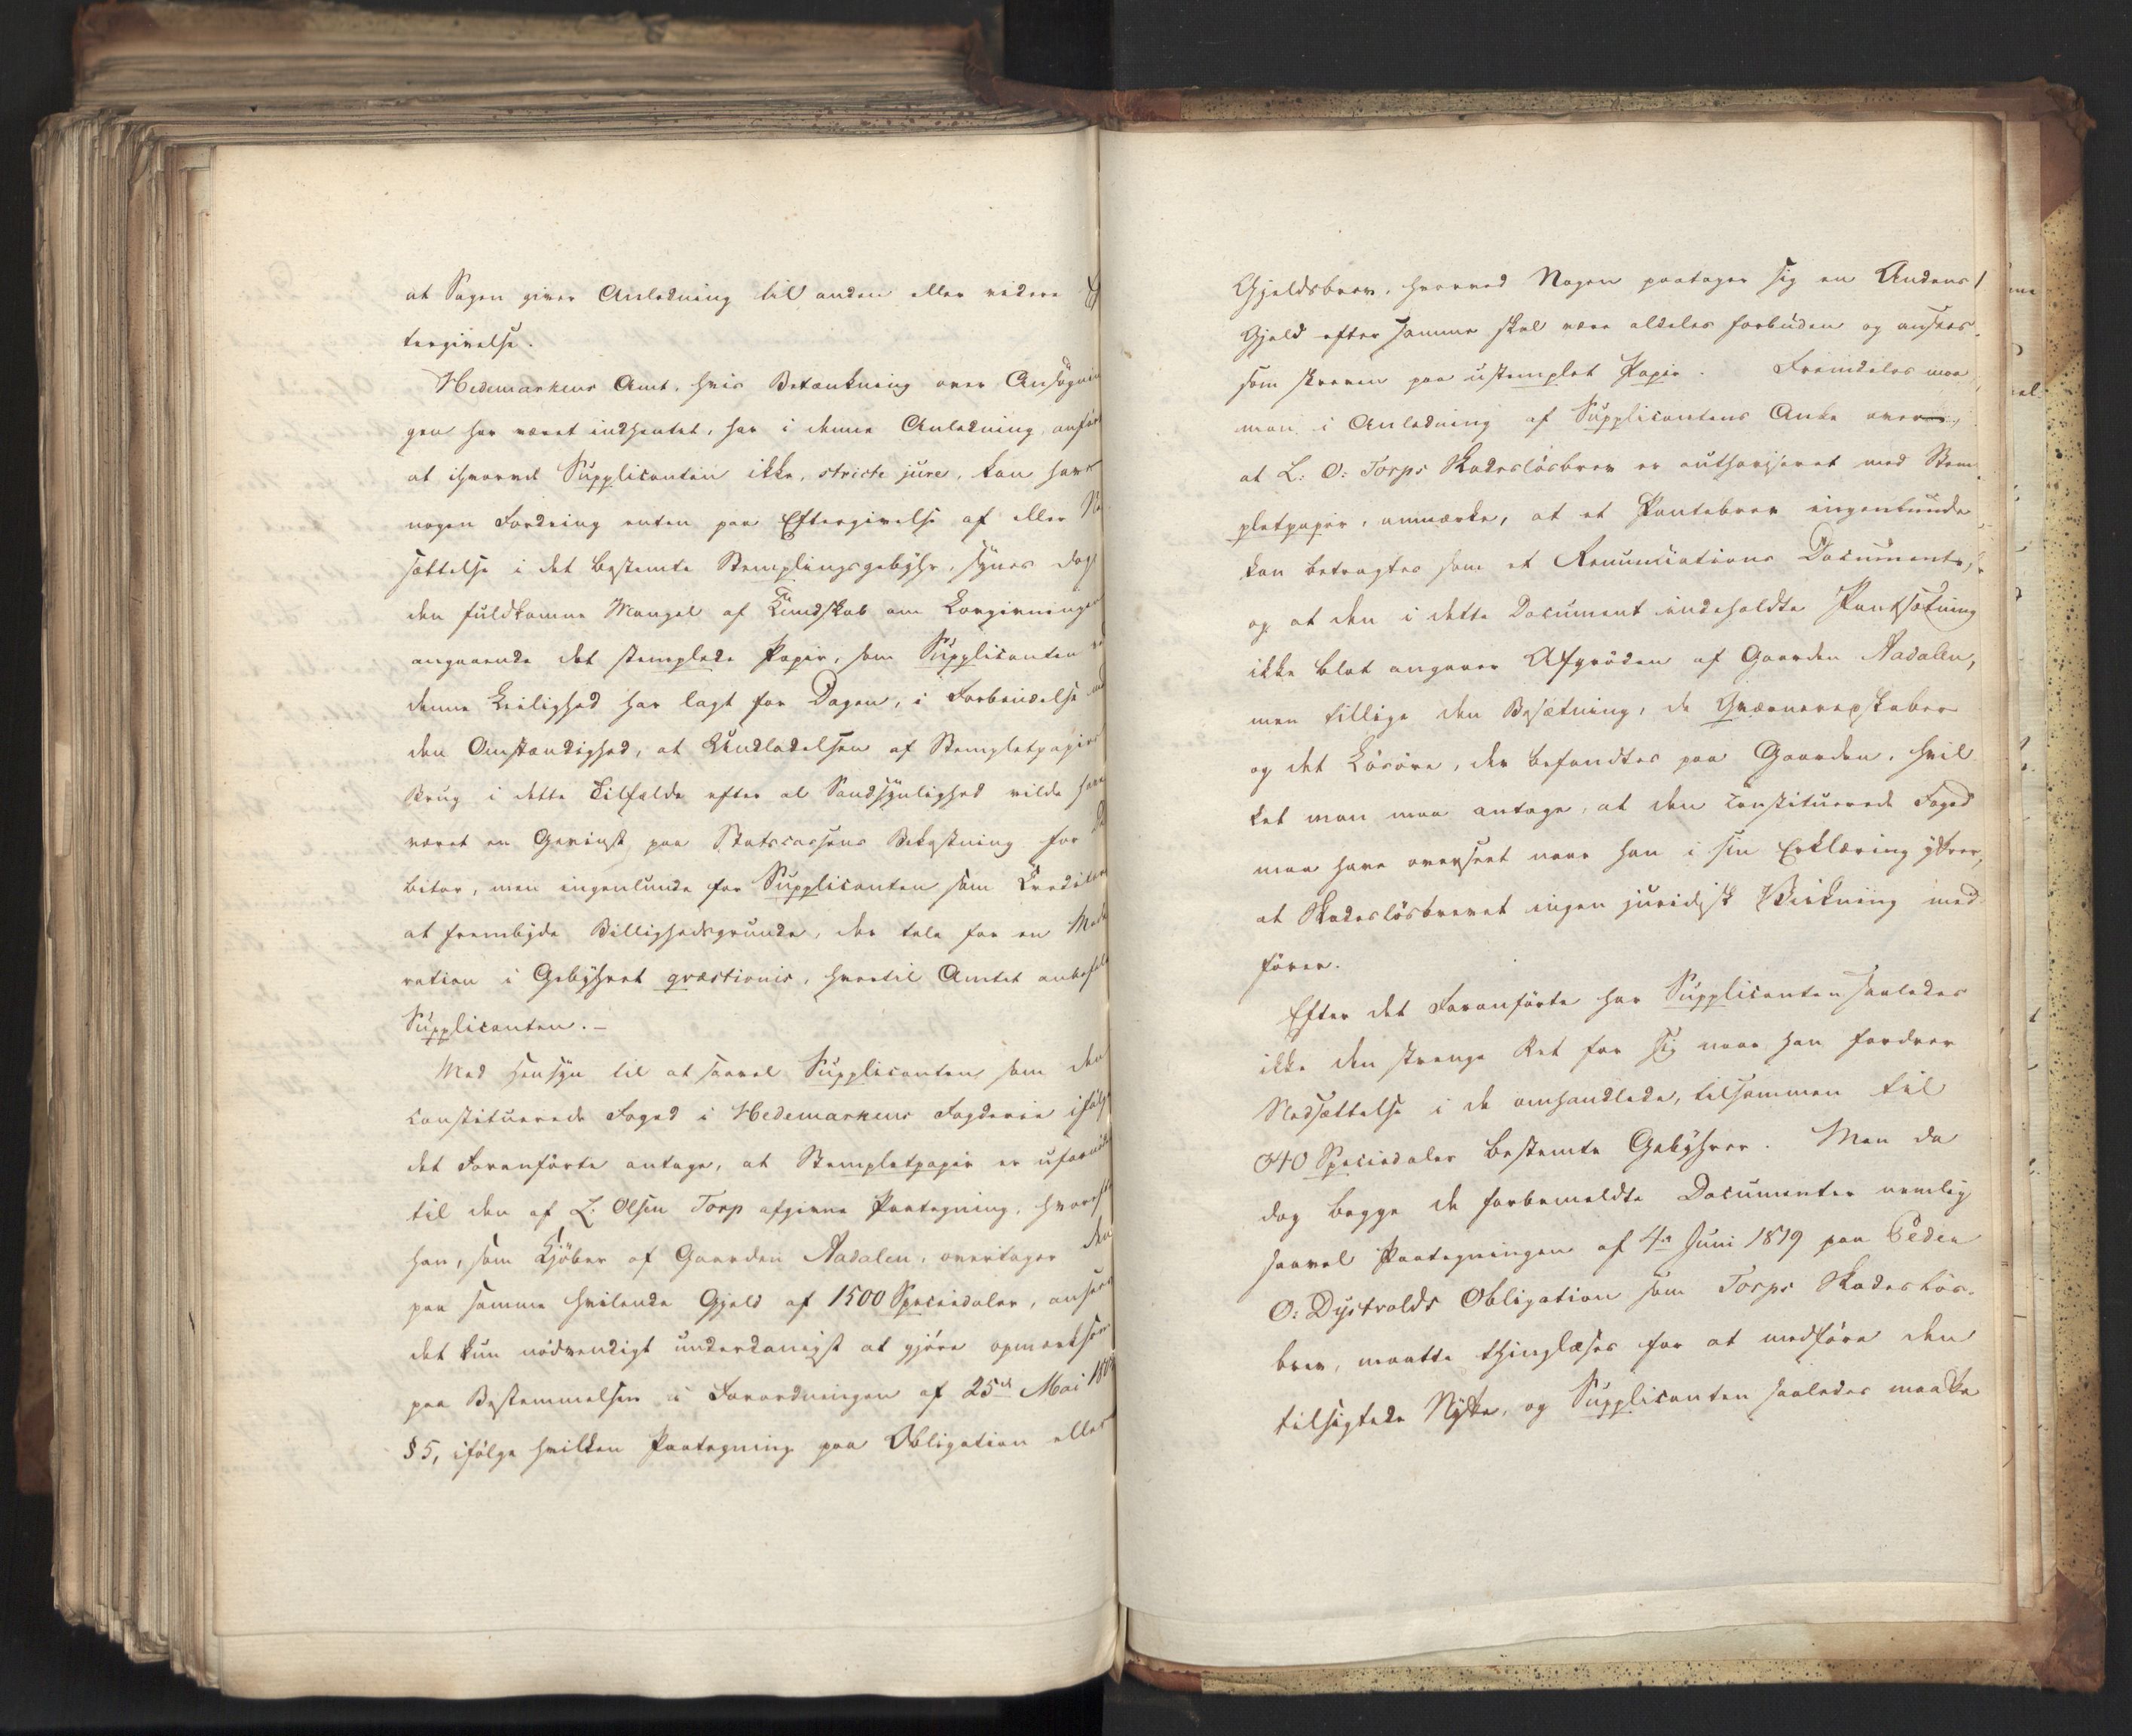 at Sagen giver Anledning til anden eller videre Ef
tergivelse.
Hedemarkens Amt, hvis Betænkning over Ansøgnin
gen har været indhentet, har i denne Anledning anført
at ihvorvel Supplicanten ikke, stricte jure, kan have
nogen Fordring enten paa Eftergivelse af eller Ned
sættelse i det bestemte Stemplingsgebyhr, synes dog
den fuldkomne Mangel af Kundskab om Lovgivningen
angaaende det stemplede Papir, som Supplicanten ved
denne Leilighed har lagt for Dagen, i Forbindelse med
den Omstændighed, at Undladelsen af Stempletpapirs
Brug i dette Tilfælde efter al Sandsynlighed vilde have
været en Gevinst paa Statscassens Bekostning for De
bitor, men ingenlunde for Supplicanten som Creditor
at frembyde Billighedsgrunde, der tale for en Mode
ration i Gebyhret qvæstionis, hvortil Amtet anbefaler
Supplicanten. –
Med Hensyn til at saavel Supplicanten som den
constituerede Foged i Hedemarkens Fogderie ifølge
det Foranførte antage, at Stempletpapir er ufornødent
til den af L. Olsen Torp afgivne Paategning, hvorefter
han, som Kjøber af Gaarden Aadalen, overtager den
paa samme hvilende Gjeld af 1500 Speciedaler, ansees
det kun nødvendigt underdanigst at gjøre opmærksom
paa Bestemmelsen i Forordningen af 25de Mai 180
§ 5, ifølge hvilken Paategning paa Obligation eller
Gjeldsbrev, hvorved Nogen paatager sig en Andens
Gjeld efter samme skal være aldeles forbuden og ansees
som skreven paa ustemplet Papir. Fremdeles maa
man i Anledning af Supplicantens Anke over,
at L. O: Torps Skadesløsbrev er authoriseret med Stem
pletpapir, anmærke, at et Pantebrev ingenlunde
kan betragtes som et Renunciations Document,
og at den i dette Document indeholdte Pantsætning
ikke blot angaaer Afgrøden af Gaarden Aadalen,
men tillige den Besætning, de Qværneredskaber
og det Løsøre, der befandtes paa Gaarden, hvil
ket man maa antage, at den constituerede Foged
maa have overseet naar han i sin Erklæring yttrer,
at Skadesløsbrevet ingen juridisk Virkning med
fører.
Efter det Foranførte har Supplicanten saaledes
ikke den strenge Ret for sig naar han fordrer
Nedsættelse i de omhandlede, tilsammen til
40 Speciedaler bestemte Gebyhrer. Men da
dog begge de forbemeldte Documenter nemlig
saavel Paategningen af 4de Juni 1819 paa Peder
O: Dystvolds Obligation som Torps Skadesløs-
brev, maatte thinglæses for at medføre den
tilsigtede Nytte, og Supplicanten saaledes maatte